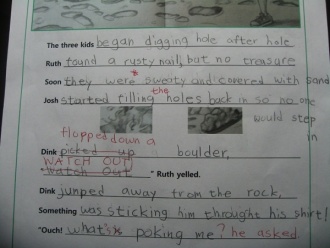 The three kids began digging hole after hole
Ruth found a rusty nail, but no treasure
Soon they were sweaty and covered with sand
the
Josh started filling holes back in so no one
would step
in
flopped down a
Dink picked up boulder,
WATCH OUT
"Watch Out " Ruth yelled.
Dink junped away from the rock,
Something was sticking him throught his shirt!
"Ouch! what's poking me? he asked